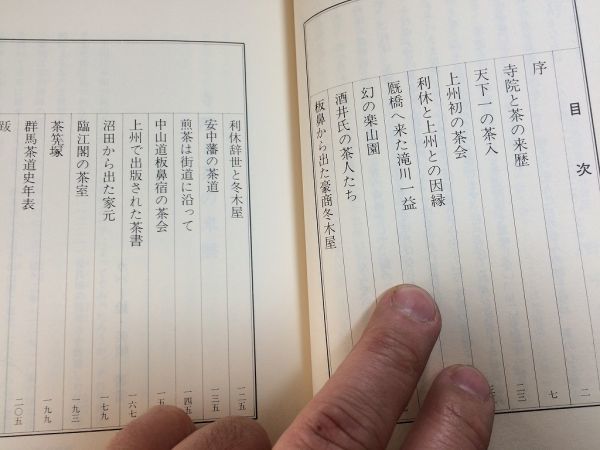 目次
序 二
寺院と茶の来歴 七
天下一の茶入
上州初の茶会 二三
利休と上州との因縁
厩橋へ来た滝川一益
幻の楽山園
酒井氏の茶人たち
板鼻から出た豪商冬木屋
利休辞世と冬木屋 一二五
安中藩の茶道 一三五
煎茶は街道に沿って 一四五
中山道板鼻宿の茶会 一五
上州で出版された茶書 一六七
沼田から出た家元 一七九
臨江閣の茶室 一九三
茶筅塚 一九九
群馬茶道史年表 二〇五
跋